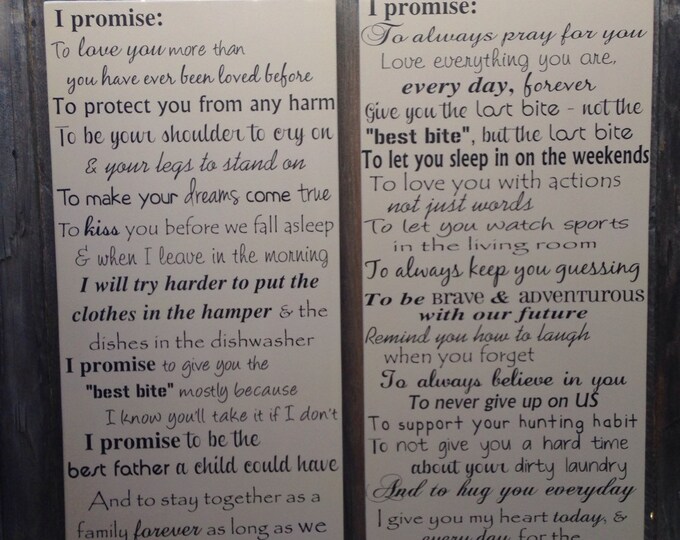 I promise:
To love you more than
you have ever been loved before
To protect you from any harm
To be your shoulder to cry on
& your legs to stand on
To make your dreams come true
To kiss you before we fall asleep
& when I leave in the morning
I will try harder to put the
clothes in the hamper & the
dishes in the dishwasher
I promise to give you the
"best bite" mostly because
I know you'll take it if I don't
I promise to be the
best father a child could have
And to stay together as a
family forever as long as we
I promise:
To always pray for you
Love everything you are,
every day, forever
Give you the last bite - not the
"best bite", but the last bite
To let you sleep in on the weekends
To love you with actions
not just words
To let you watch sports
in the living room
To always keep you guessing
To be BRAVE & ADVENTUROUS
with our future
Remind you how to laugh
when you forget
To always believe in you
To never give up on US
To support your hunting habit
To not give you a hard time
about your dirty laundry
And to hug you everyday
I give you my heart today, &
every day, for the